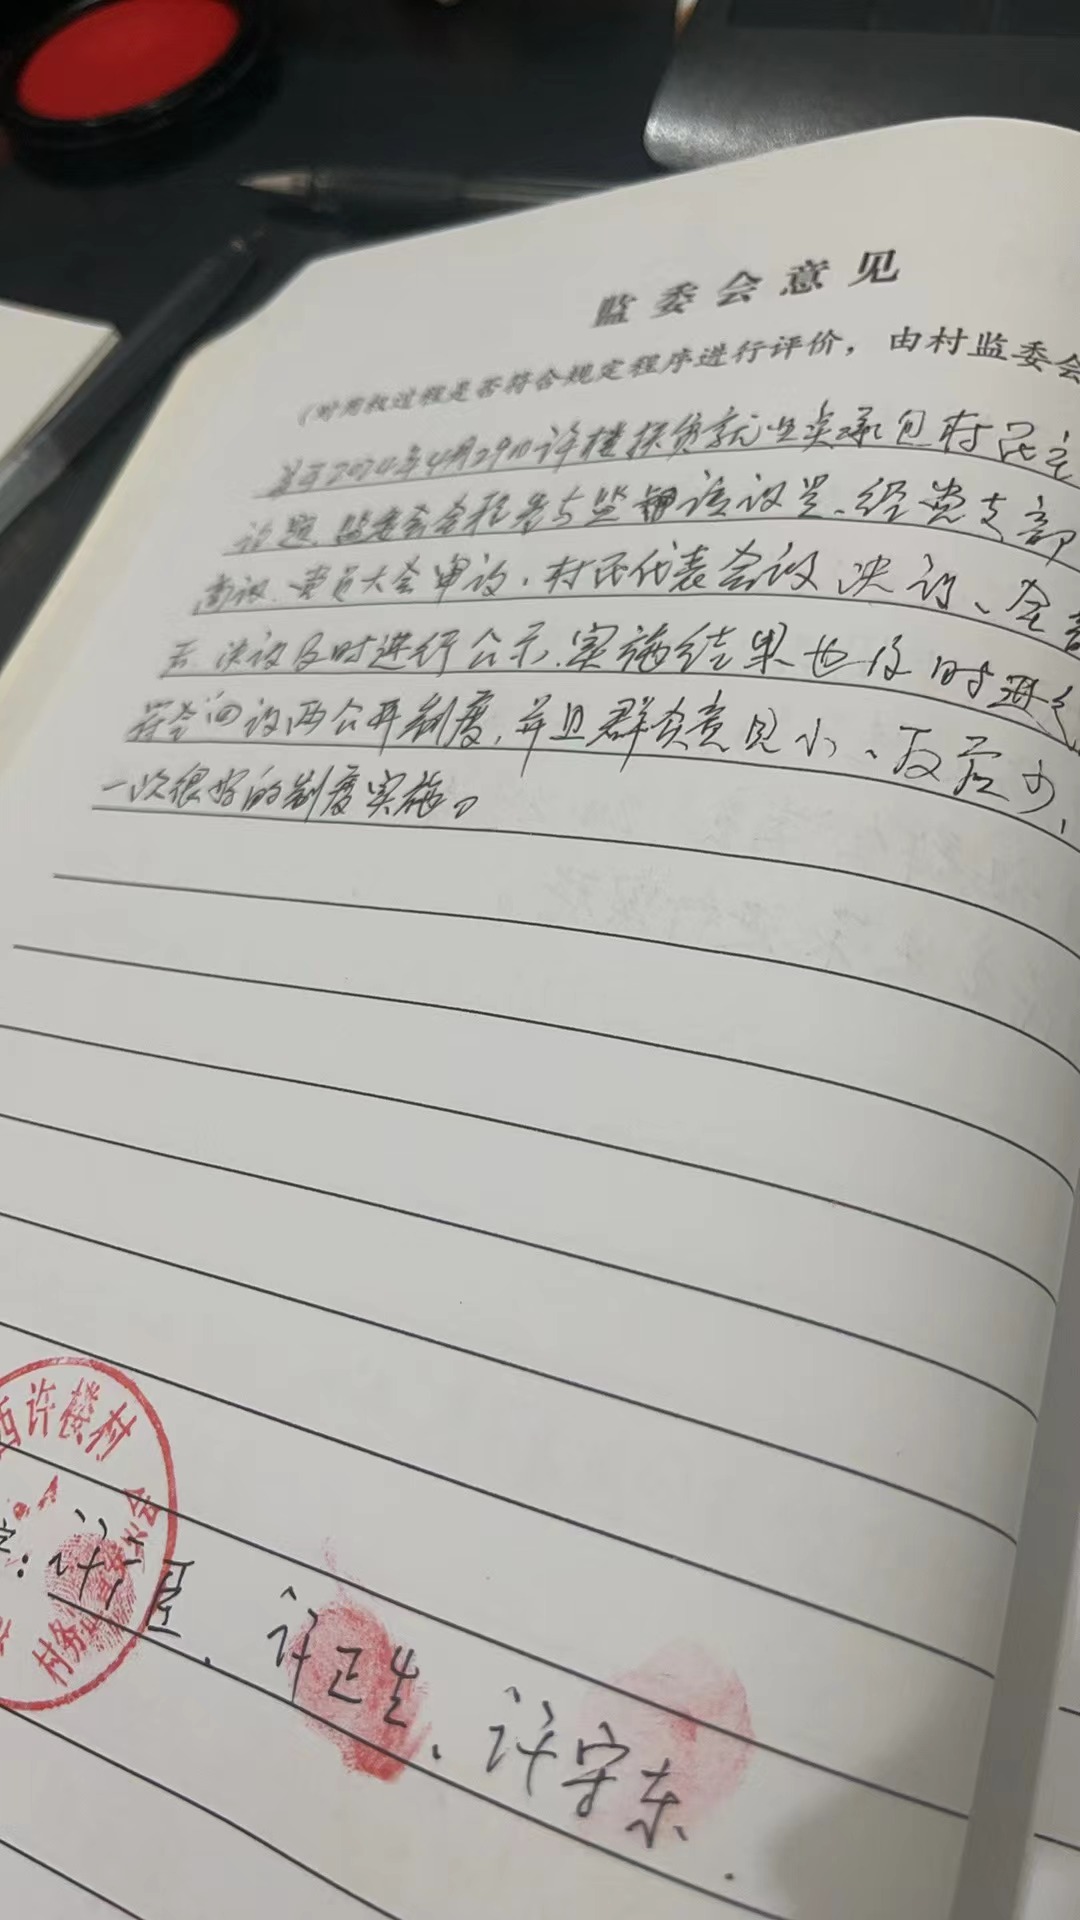 监委会意见
(对用权过程是否符合规定程序进行评价，由村监委会
关于2024年4月29日许楼扶贫就业点承包村民主
议题、监委会全程参与监督该议题、经党支部
商议、党员大会审议、村民代表会议决议、会
后、决议及时进行公示、实施结果也及时进行
符合四议两公开制度，并且群众意见小、反应少、
一次很好的制度实施。
西许楼村
村务监 委员会
字：许 臣、许正生、许守东.